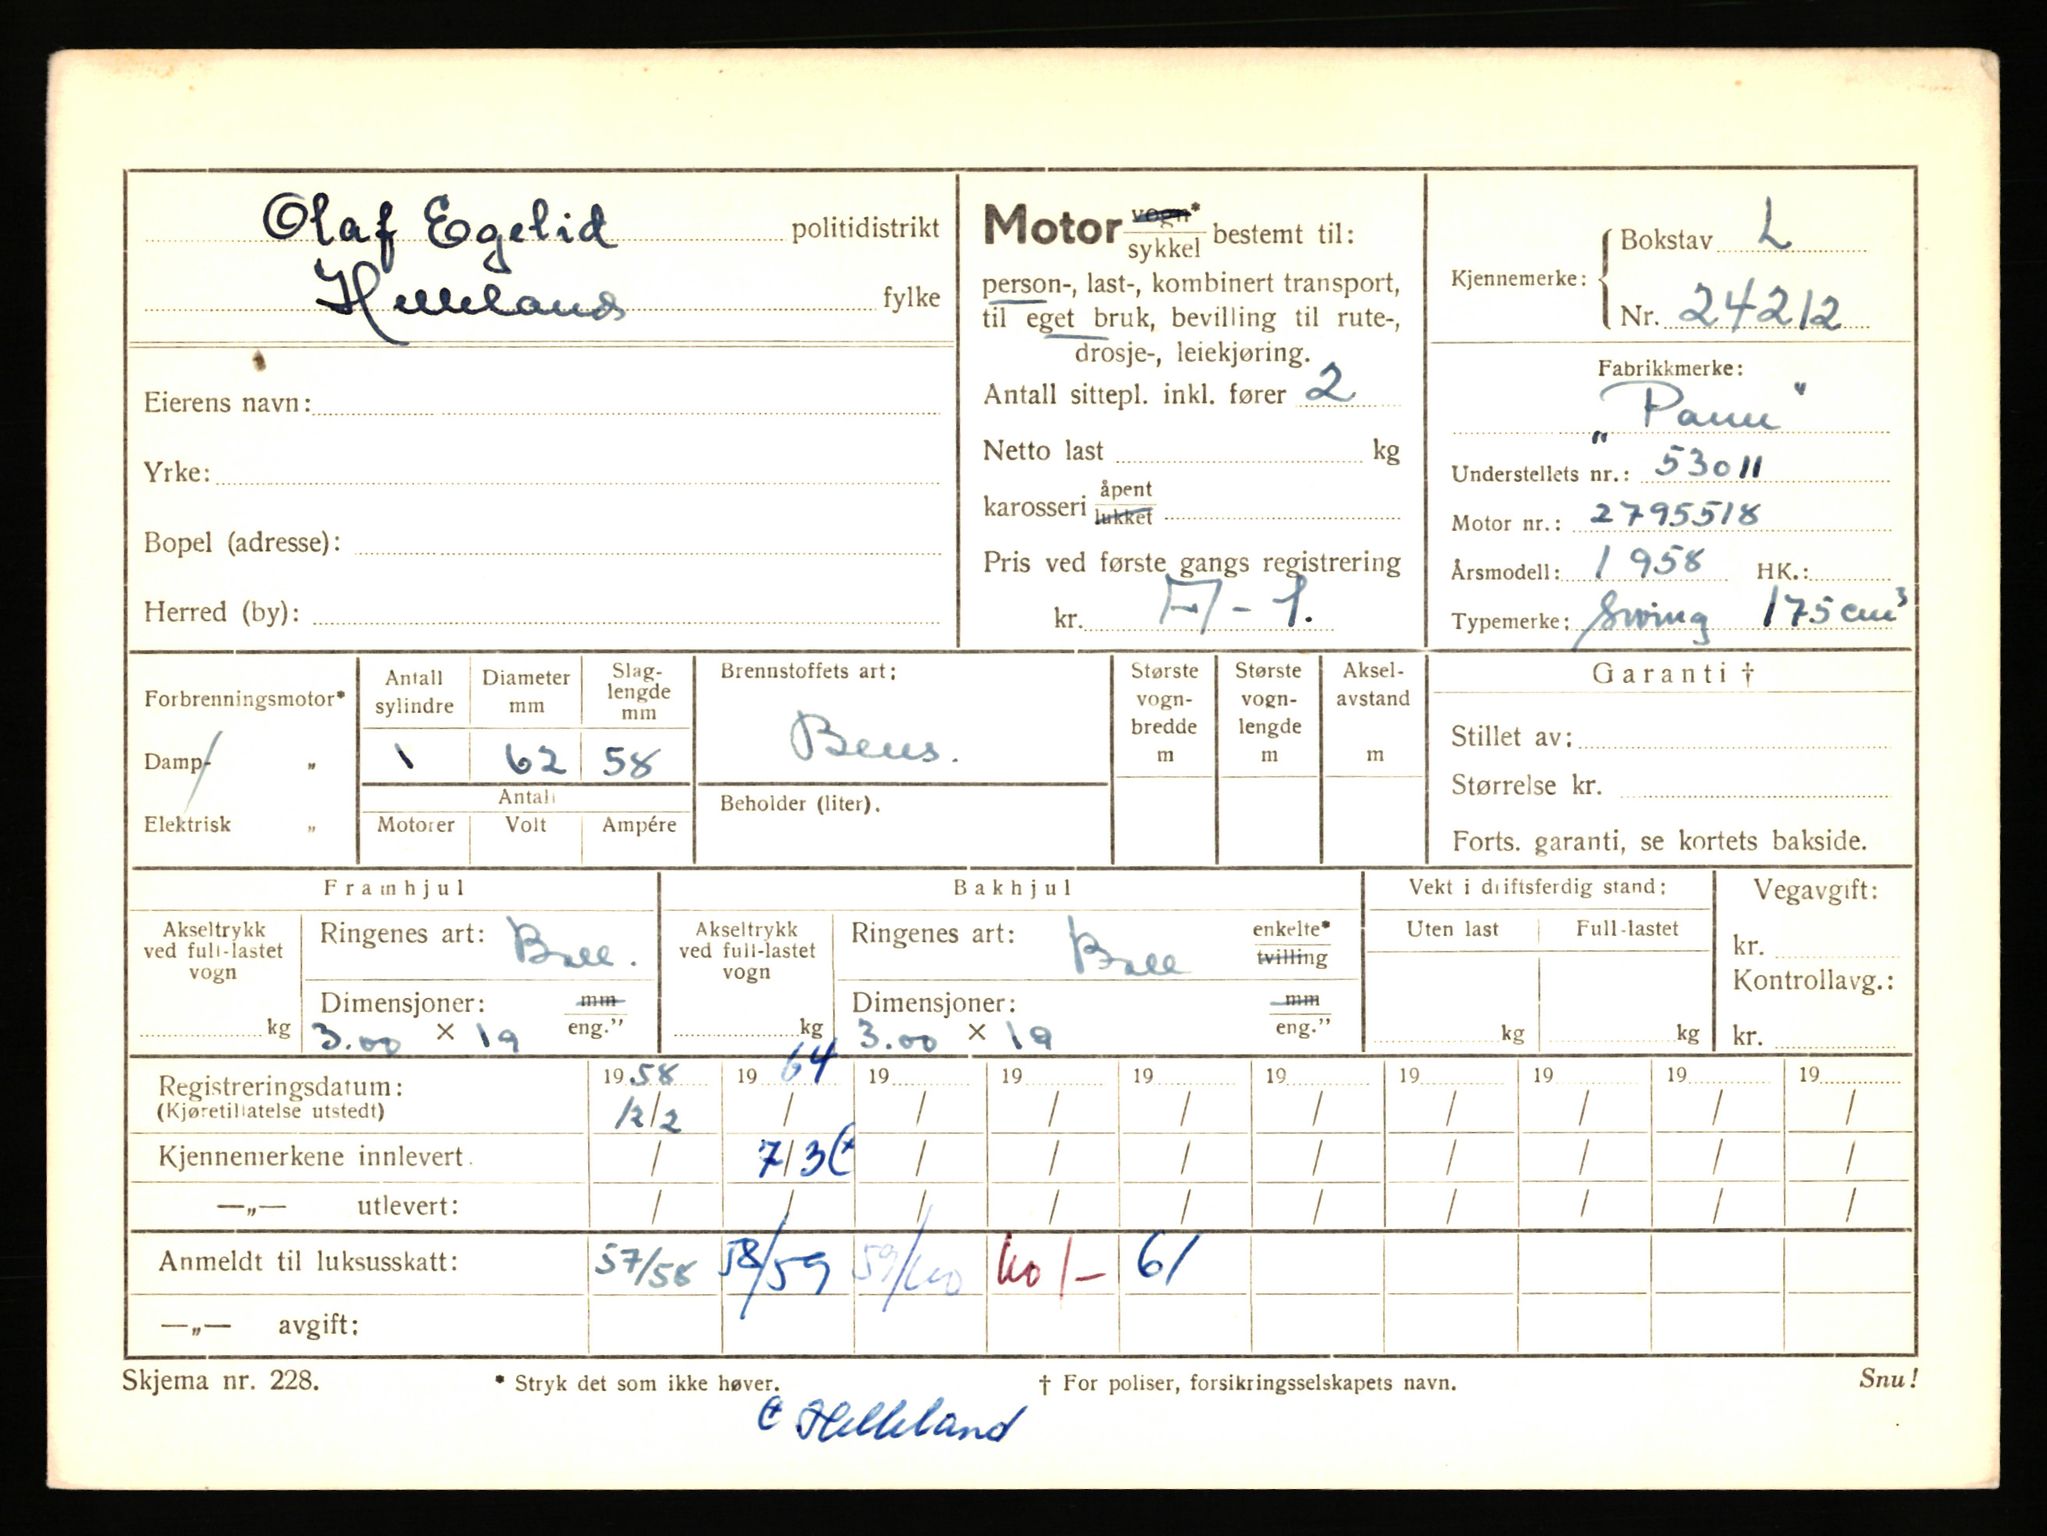 Olaf Egelid politidistrikt
Helleland fylke
Eierens navn:
Yrke:
Bopel (adresse):
Herred (by):
Motor vogn* sykkel bestemt til:
person-, last-, kombinert transport,
til eget bruk, bevilling til rute-,
drosje-, leiekjøring.
Antall sittepl. inkl. fører 2
Netto last kg
karosseri åpent lukket
Pris ved første gangs registrering
kr.
Kjennemerke: Bokstav L
Nr. 24212
Fabrikkmerke:
Understellets nr.: 53011
Motor nr.: 2795518
Årsmodell: 1958 HK.:
Typemerke: Swing 175 cm³
Forbrenningsmotor*
Damp- „
Elektrisk „
Antall sylindre
Diameter mm
Slaglengde mm
1 62 58
Antall
Motorer Volt Ampére
Brennstoffets art:
Bens.
Beholder (liter).
Største vognbredde m
Største vognlengde m
Akselavstand m
Garanti †
Stillet av:
Størrelse kr.
Forts. garanti, se kortets bakside.
Framhjul
Akseltrykk ved full-lastet vogn
kg
Ringenes art: Ball.
Dimensjoner: mm eng.”
3.00 × 19
Bakhjul
Akseltrykk ved full-lastet vogn
kg
Ringenes art: Ball enkelte* tvilling
Dimensjoner: mm eng.”
3.00 × 19
Vekt i driftsferdig stand:
Uten last Full-lastet
kg kg
Vegavgift:
kr.
Kontrollavg.:
kr.
Registreringsdatum: 1958 1964 19 19 19 19 19 19 19 19
(Kjøretillatelse utstedt) 12/2 / / / / / / / / /
Kjennemerkene innlevert. / 7/3 / / / / / / / /
—„— utlevert: / / / / / / / / / /
Anmeldt til luksusskatt: 57/58 58/59 59/60 60/- 61
—„— avgift:
Skjema nr. 228. * Stryk det som ikke høver. † For poliser, forsikringsselskapets navn. Snu!
Helleland